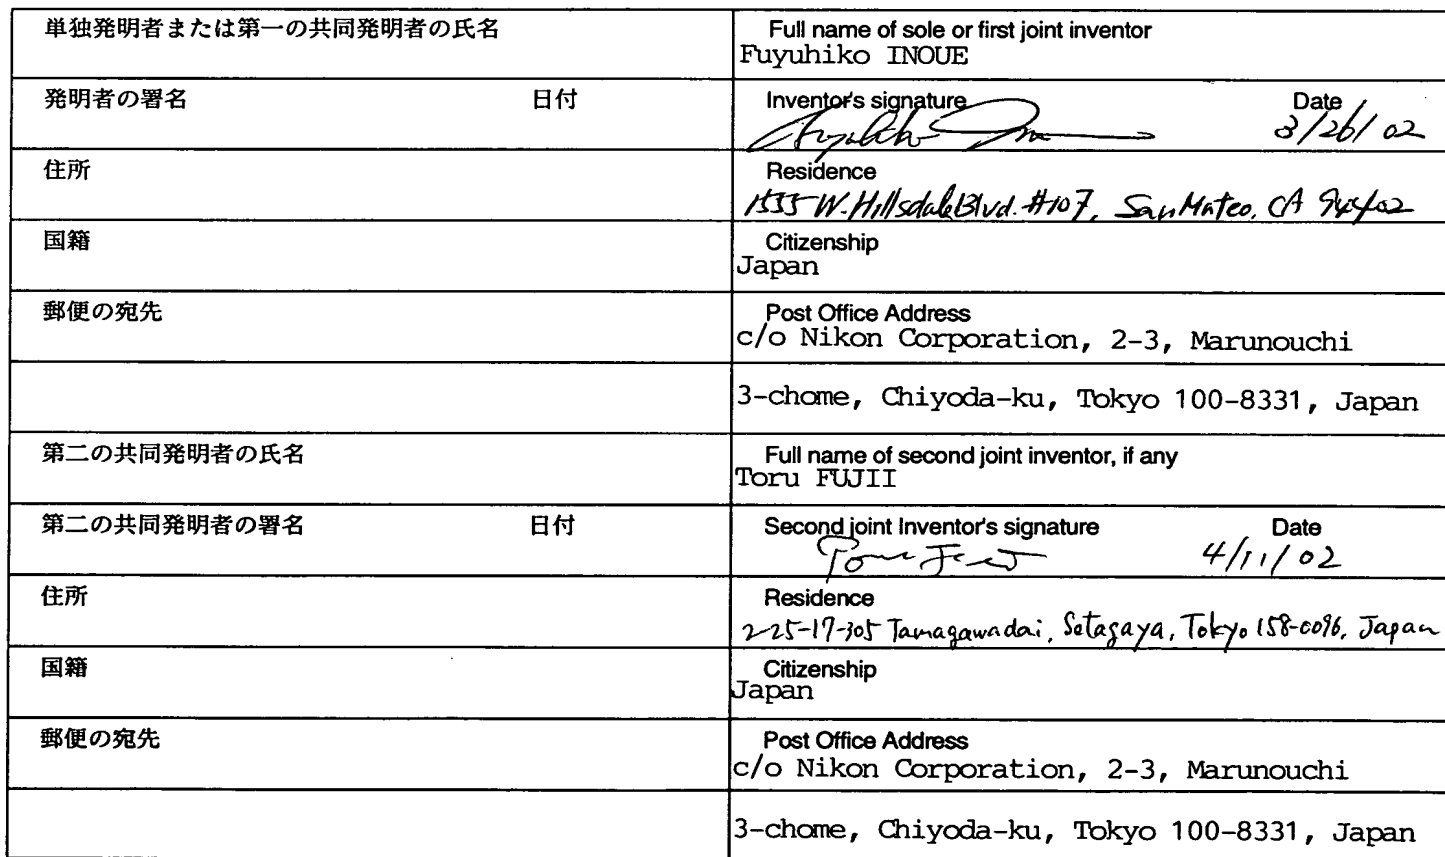 単独発明者または第一の共同発明者の氏名
Full name of sole or first joint inventor
Fuyuhiko INOUE
発明者の署名 日付
Inventor's signature Date
3/26/02
住所
Residence
1535 W. Hillsdale Blvd. #107, San Mateo, CA 94402
国籍
Citizenship
Japan
郵便の宛先
Post Office Address
c/o Nikon Corporation, 2-3, Marunouchi
3-chome, Chiyoda-ku, Tokyo 100-8331, Japan
第二の共同発明者の氏名
Full name of second joint inventor, if any
Toru FUJII
第二の共同発明者の署名 日付
Second joint Inventor's signature Date
4/11/02
住所
Residence
2-25-17-305 Tamagawadai, Setagaya, Tokyo 158-0096, Japan
国籍
Citizenship
Japan
郵便の宛先
Post Office Address
c/o Nikon Corporation, 2-3, Marunouchi
3-chome, Chiyoda-ku, Tokyo 100-8331, Japan